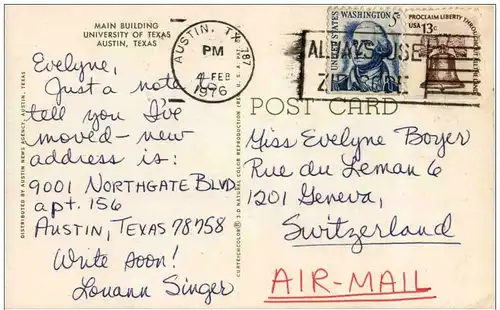 MAIN BUILDING
UNIVERSITY OF TEXAS
AUSTIN, TEXAS
Evelyne,
Just a note
tell you I've
moved - new
address is:
9001 NORTHGATE BLVD.
apt. 156
AUSTIN, TEXAS 78758
Write soon!
Louann Singer
DISTRIBUTED BY AUSTIN NEWS AGENCY, AUSTIN, TEXAS
CURTEICHCOLOR® 3-D NATURAL COLOR REPRODUCTION
AUSTIN, TX 787
PM
FEB
1976
ALWAYS USE
ZIP CODE
WASHINGTON 5c
UNITED STATES
PROCLAIM LIBERTY THROUGHOUT
USA 13c
POST CARD
Miss Evelyne Boyer
Rue du Leman 6
1201 Geneva,
Switzerland
AIR-MAIL